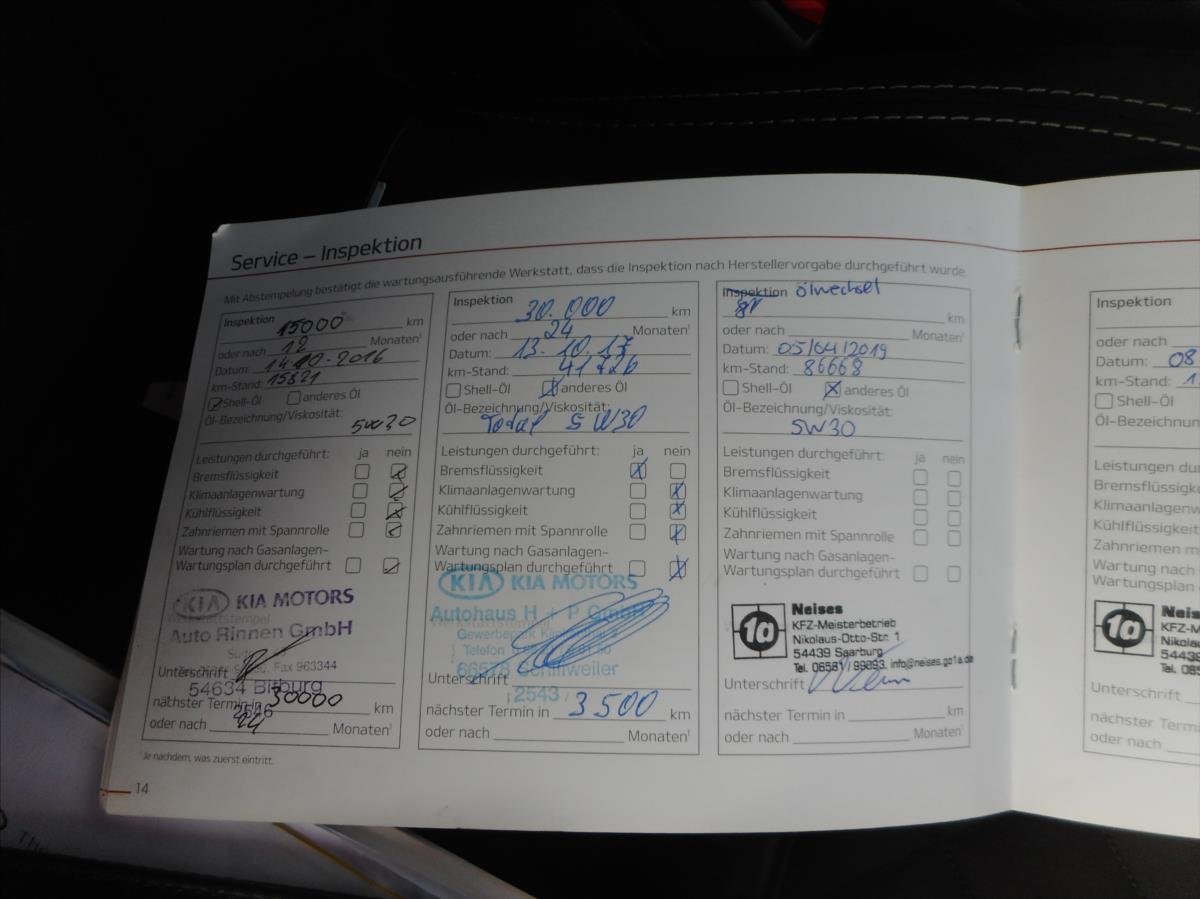 Service – Inspektion
Mit Abstempelung bestätigt die wartungsausführende Werkstatt, dass die Inspektion nach Herstellervorgabe durchgeführt wurde.
Inspektion 15000 km
oder nach 12 Monaten¹
Datum: 14.10.2016
km-Stand: 15321
Shell-Öl anderes Öl
Öl-Bezeichnung/Viskosität:
5W30
Leistungen durchgeführt: ja nein
Bremsflüssigkeit
Klimaanlagenwartung
Kühlflüssigkeit
Zahnriemen mit Spannrolle
Wartung nach Gasanlagen-
Wartungsplan durchgeführt
KIA KIA MOTORS
Werkstattstempel
Auto Rinnen GmbH
Fax 963344
Unterschrift
54634 Bitburg
nächster Termin in 30000 km
oder nach 24 Monaten¹
Inspektion 30.000 km
oder nach 24 Monaten¹
Datum: 13.10.17
km-Stand: 41726
Shell-Öl anderes Öl
Öl-Bezeichnung/Viskosität:
Total 5W30
Leistungen durchgeführt: ja nein
Bremsflüssigkeit
Klimaanlagenwartung
Kühlflüssigkeit
Zahnriemen mit Spannrolle
Wartung nach Gasanlagen-
Wartungsplan durchgeführt
KIA KIA MOTORS
Autohaus H + P GmbH
Werkstattstempel
Gewerbepark
Telefon
66578 Schiffweiler
Unterschrift
2543
nächster Termin in 3500 km
oder nach Monaten¹
Inspektion Ölwechsel
km
oder nach Monaten¹
Datum: 05/04/2019
km-Stand: 86668
Shell-Öl anderes Öl
Öl-Bezeichnung/Viskosität:
5W30
Leistungen durchgeführt: ja nein
Bremsflüssigkeit
Klimaanlagenwartung
Kühlflüssigkeit
Zahnriemen mit Spannrolle
Wartung nach Gasanlagen-
Wartungsplan durchgeführt
1a Neises
KFZ-Meisterbetrieb
Nikolaus-Otto-Str. 1
54439 Saarburg
Tel. 06581/99093, info@neises.go1a.de
Unterschrift
nächster Termin in km
oder nach Monaten¹
¹Je nachdem, was zuerst eintritt.
14
Inspektion
oder nach
Datum: 08
km-Stand: 1
Shell-Öl
Öl-Bezeichnun
Leistungen dur
Bremsflüssigke
Klimaanlagen
Kühlflüssigkeit
Zahnriemen m
Wartung nach
Wartungsplan
1a Neis
KFZ-M
Nikola
54439
Tel. 065
Unterschrift
nächster Term
oder nach